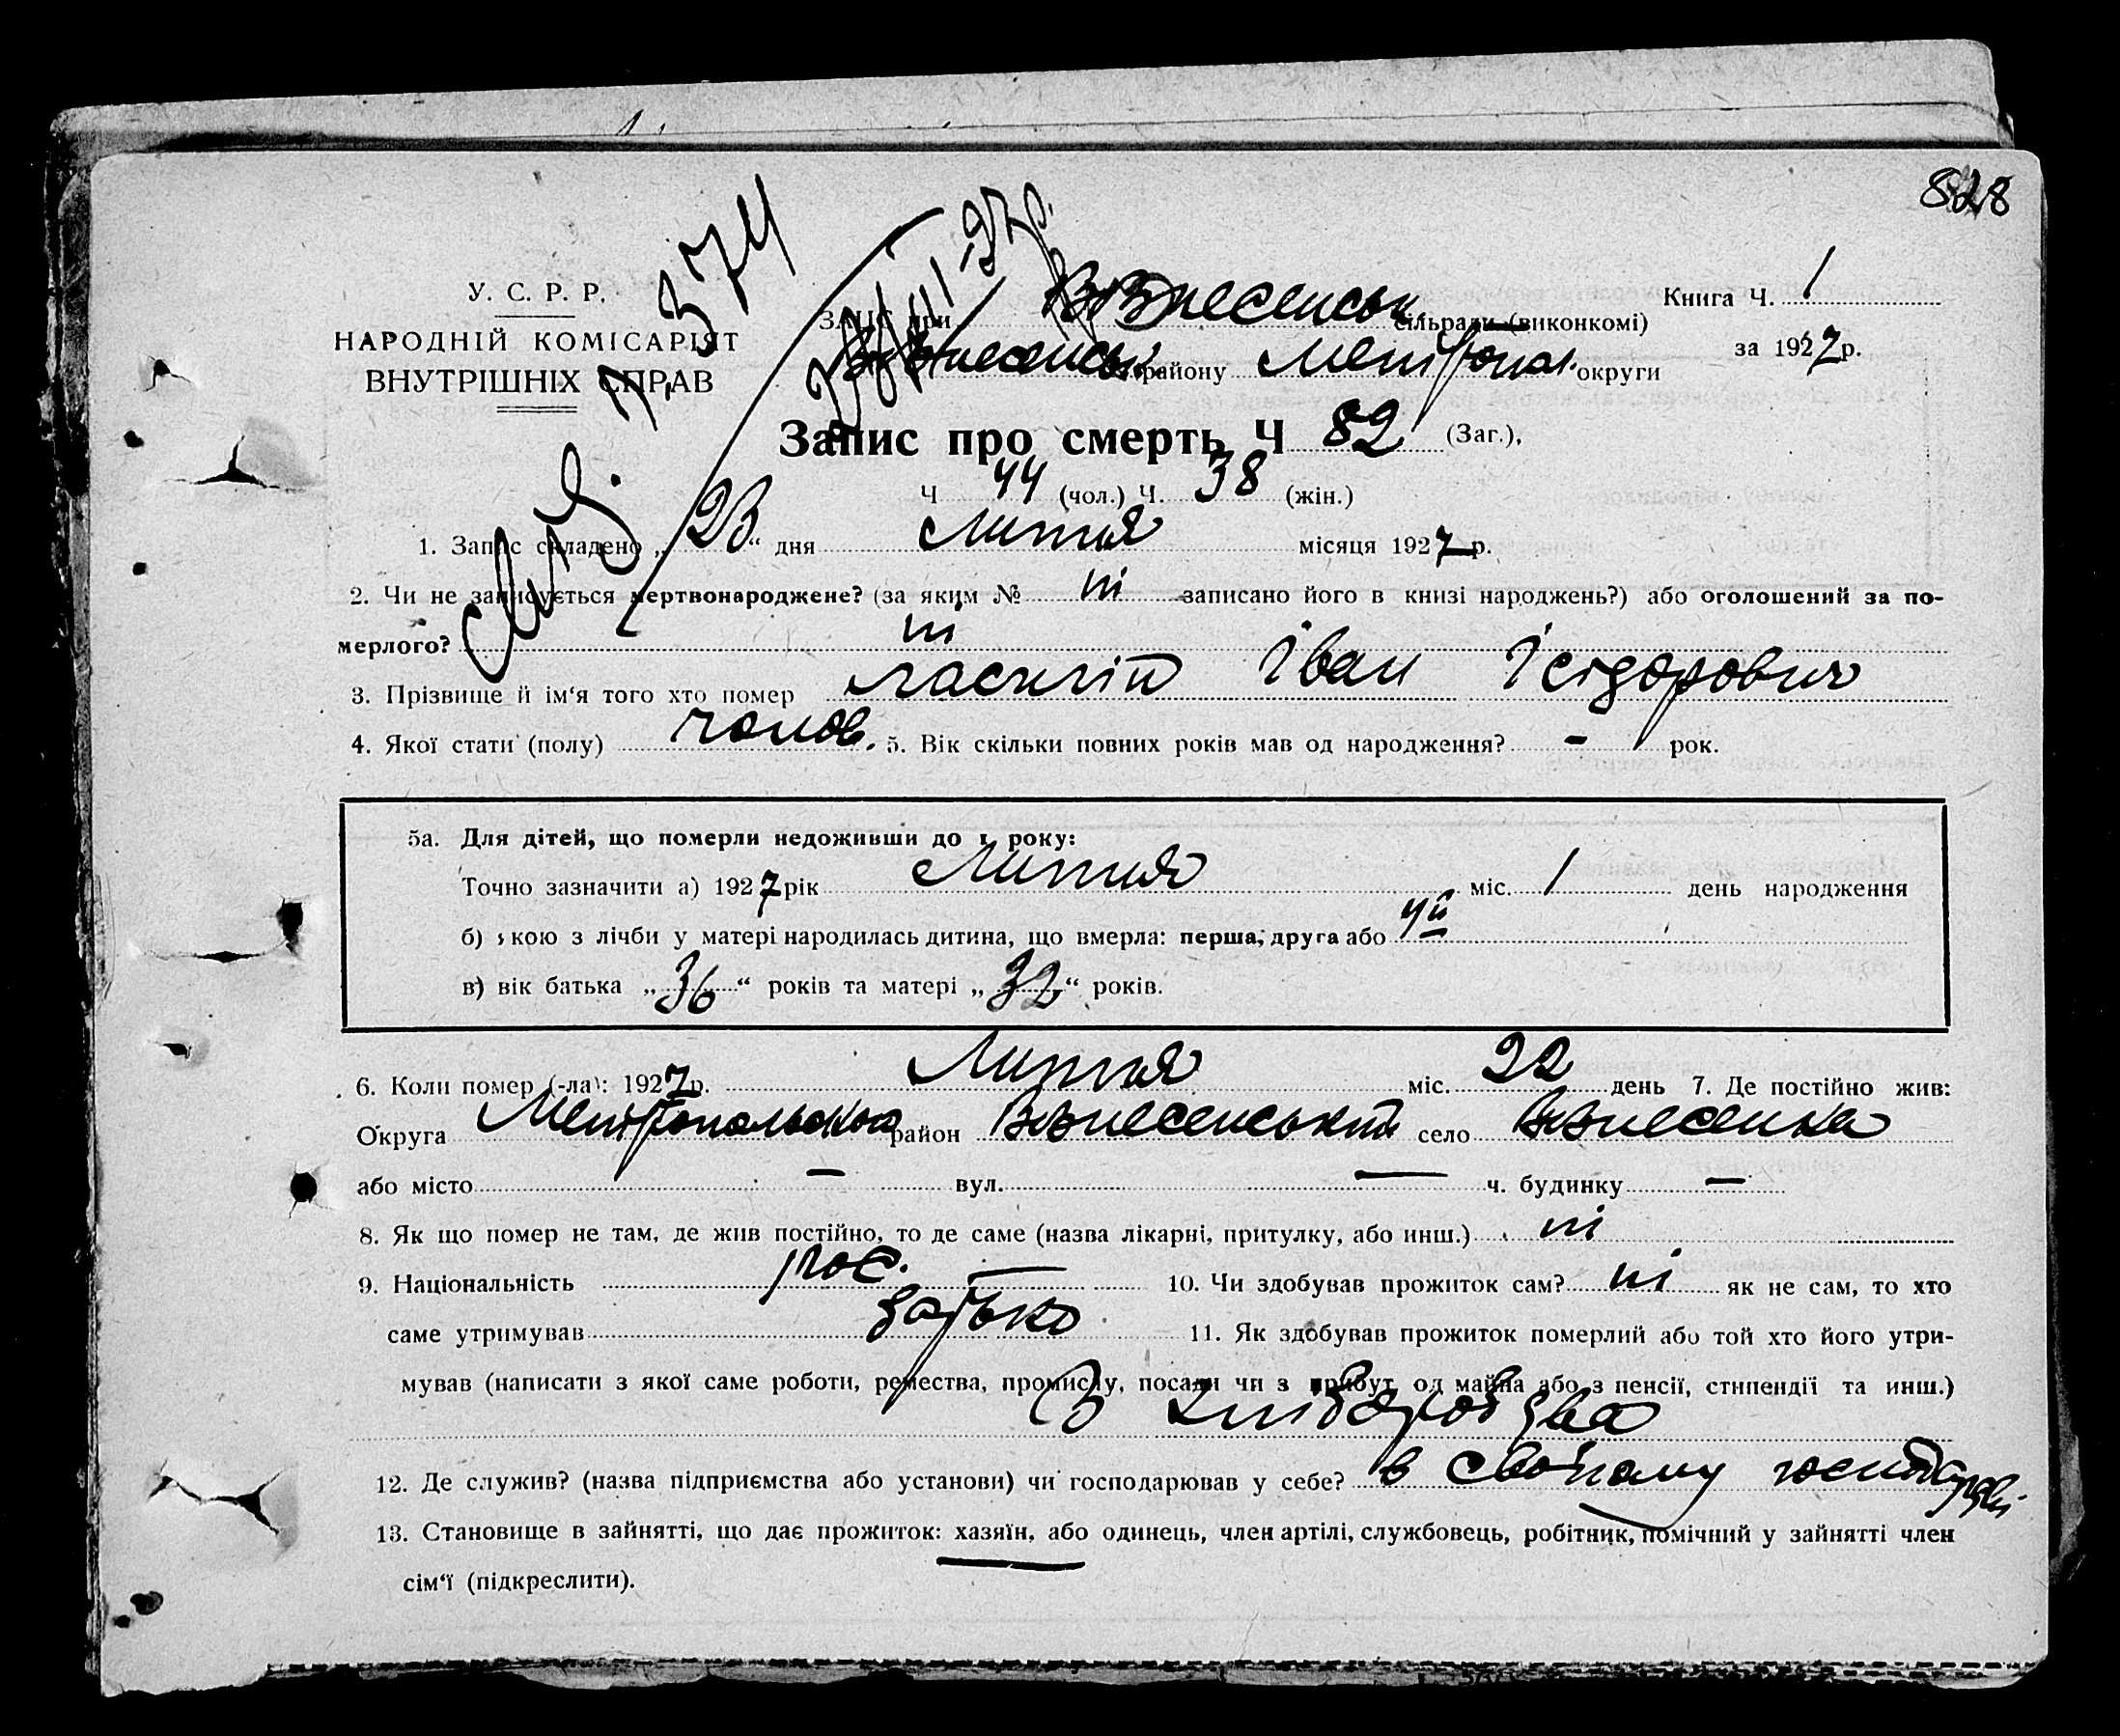 828
У. С. Р. Р.
НАРОДНІЙ КОМІСАРІЯТ
ВНУТРІШНІХ СПРАВ
374
ЗАГС при Вознесенськ. сільради (виконкомі)
Вознесенськ. району Мелітопол. округи
Книга Ч. 1
за 1927 р.
Запис про смерть Ч 82 (Заг.),
Ч 44 (чол.) Ч. 38 (жін.)
1. Запис складено „23“ дня Липня місяця 1927 р.
2. Чи не записується мертвонароджене? (за яким № ні записано його в книзі народжень?) або оголошений за по-
мерлого? ні
3. Прізвище й ім‘я того хто помер Іван Ісідорович
4. Якої стати (полу) чолов. 5. Вік скільки повних років мав од народження? - рок.
5а. Для дітей, що померли недоживши до 1 року:
Точно зазначити а) 1927 рік Липня міс. 1 день народження
б) якою з лічби у матері народилась дитина, що вмерла: перша, друга або 4й
в) вік батька „36“ років та матері „32“ років.
6. Коли помер (-ла): 1927 р. Липня міс. 22 день 7. Де постійно жив:
Округа Мелітопольська район Вознесенський село Вознесенка
або місто — вул. — ч. будинку —
8. Як що помер не там, де жив постійно, то де саме (назва лікарні, притулку, або инш.) ні
9. Національність рос. — 10. Чи здобував прожиток сам? ні як не сам, то хто
саме утримував батько 11. Як здобував прожиток померлий або той хто його утри-
мував (написати з якої саме роботи, ремества, промислу, посади чи з прибут. од майна або з пенсії, стипендії та инш.)
З хліборобства
12. Де служив? (назва підприємства або установи) чи господарював у себе? в своєму господарстві
13. Становище в зайнятті, що дає прожиток: хазяїн, або одинець, член артілі, службовець, робітник, помічний у зайнятті член
сім‘ї (підкреслити).